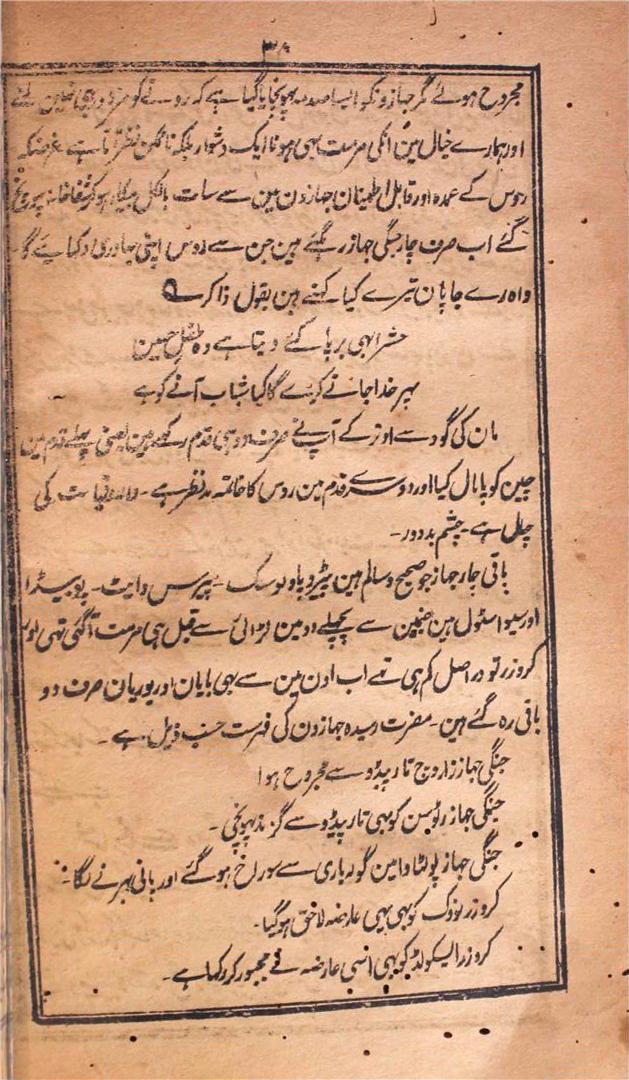 ۳۸
مجروح ہوئے مگر جہازونکو ایسا صدمہ پہونچایا گیا ہے کہ روسکو
اور ہمارے خیال مین انکی مرمت بہی ہونا ایک دشوار بلکہ ناممکن نظر آتا ہے غرضکہ
روس کے عمدہ اور قابل اطمینان جہازون مین سے سات بالکل بیکار ہوکر شفاخانہ پہونچ
گئے اب صرف چار جنگی جہاز رہگئے ہین جن سے روس اپنی بہادری دکہائے گا۔
واہ رے جاپان تیرے کیا کہنے ہین بقول ذاکر
حشر ابہی برپا کئے دیتا ہے وہ طفل حسین
پہر خدا جانے کریگا کیا شباب آنے کو ہے
مان کی گود سے اوتر کے آپنے صرف دو ہی قدم رکہے ہین یعنی پہلے قدم مین
چین کو پامال کیا اور دوسرے قدم مین روس کا خاتمہ مدنظر ہے۔ واللہ قیامت کی
چال ہے۔ چشم بددور۔
باقی چار جہاز جو صحیح و سالم ہین پیٹروپاولوسک۔ پیرس وایٹ۔ پوبیڈا
اور سیواسٹوپل ہین جنمین سے پچہلے دو مین لڑائی سے قبل ہی مرمت آگئی تہی
کروزر تو دراصل کم ہی تہے اب اون مین سے بہی بایان اور پوریان صرف دو
باقی رہ گئے ہین۔ مضرت رسیدہ جہازون کی فہرست حسب ذیل ہے۔
جنگی جہاز زاروچ تارپیڈو سے مجروح ہوا
جنگی جہاز رٹوسن کو بہی تارپیڈو سے گزند پہونچی۔
جنگی جہاز پولٹاوا مین گولہ باری سے سوراخ ہو گئے اور پانی بہرنے لگا۔
کروزر نووک کو بہی یہی عارضہ لاحق ہوگیا۔
کروزر ایسکولڈ کو بہی اسی عارضہ نے مجبور کر رکہا ہے۔